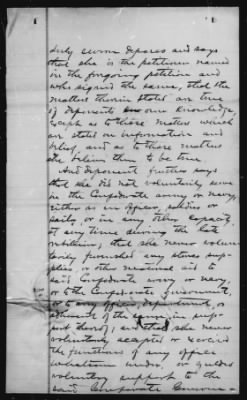 duly sworn deposes and says
that she is the petitioner named
in the forgoing petition and
who signed the same, that the
matters therein stated are true
of deponents own knowledge
except as to those matters which
are stated on information and
belief, and as to those matters
she believes them to be true.
And deponent further says
that she did not voluntarily serve
in the Confederate army or navy,
either as an officer, soldier or
sailor, or in any other capacity,
at any time during the late
rebellion; that she never volun-
tarily furnished any stores, sup-
plies, or other material aid to
said Confederate army or navy,
or to the Confederate government,
or to any officer, department, or
adherents of the same in sup-
port thereof; and that she never
voluntarily accepted or exercised
the functions of any office
whatsoever under, or yielded
voluntary support to the
said Confederate Govern-